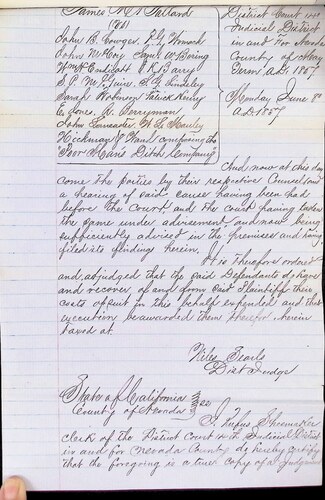 James M. Pallard
vs
John B. Conger, J. G. Womack
John McCoy Saml W Boring
Wm H Endicott J R Barry
S. P. McGuire, S. G. Lindsley
Sarah Robinson Patrick Henry
E. Jones, A. Berryman
John Lancaster W L Manley
Hickman & Ward composing the
"Poor Mans Ditch Company"
District Court
Judicial District
in and for
County of
Term A.D. 1857
Monday June 8th
A.D. 1857
And now at this day
come the parties by their respective Counsel and
a hearing of said cause having been had
before the Court, and the Court having taken
the same under advisement and now being
sufficiently advised in the premises and having
filed its finding herein,
It is Therefore ordered
and adjudged that the said Defendants do have
and recover of and from said Plaintiff their
costs of suit in this behalf expended and that
execution be awarded them therefor herein
taxed at
Niles Searls
Dist Judge
State of California
County of Nevada } SS
I, Rufus Shoemaker
clerk of the District Court Judicial District
in and for Nevada County do hereby certify
that the foregoing is a true copy of a Judgment